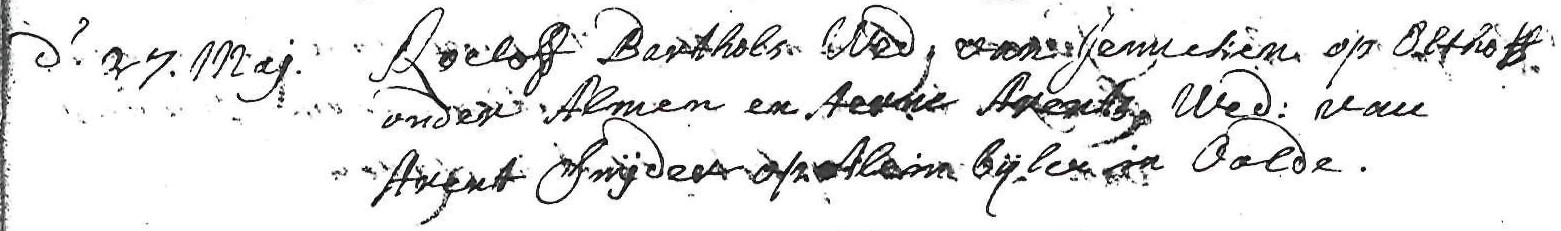 d' 27. Maj. Roeloff Barthols Wed, van Jenneken op Olthoff
onder Almen en Aerne Arents, Wed: van
Arent Snijder op klein bijler in Oolde.